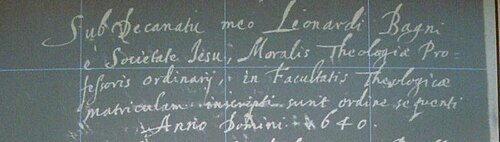 Sub Decanatu meo Leonardi Bagni
è Societate Iesu, Moralis Theologiæ Pro-
fessoris ordinarij, in Facultatis Theologicæ
matriculam inscripti sunt ordine sequenti
Anno Domini 1640.